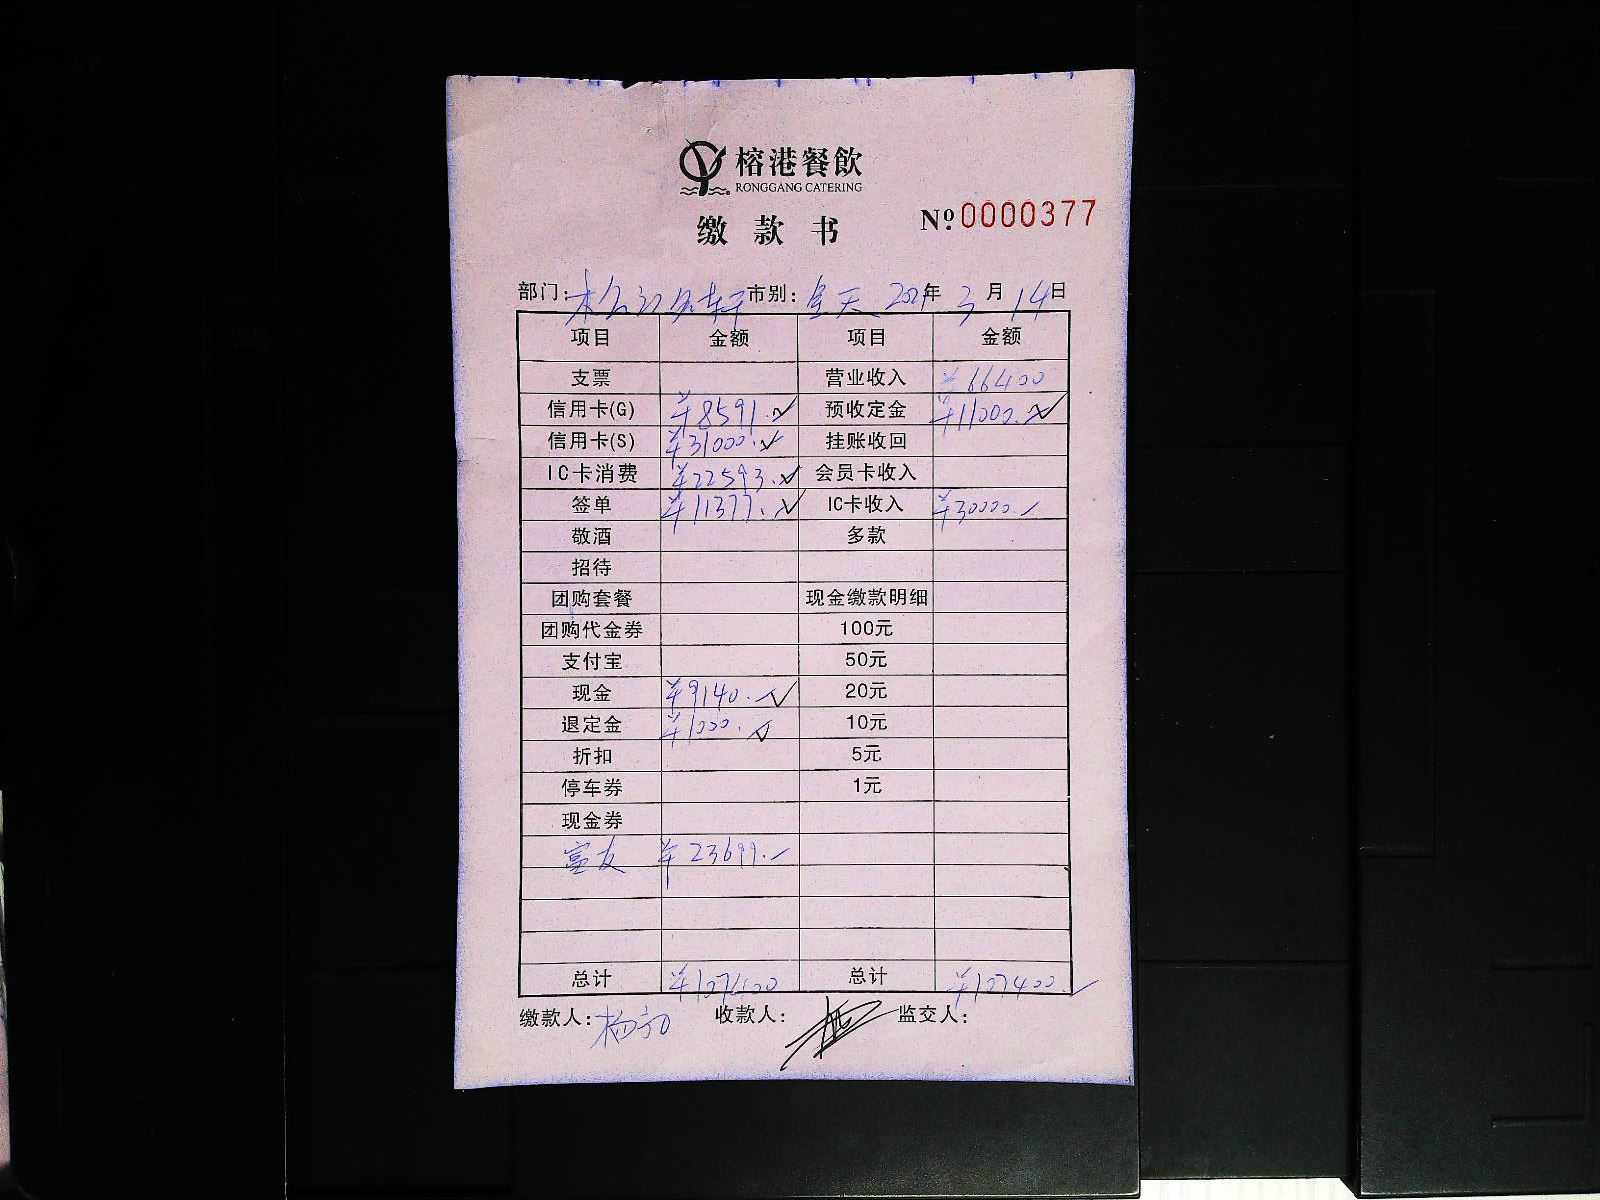 榕港餐飲
RONGGANG CATERING
缴款书 №0000377
部门: 市别: 全天 2021年 3月 14日
项目 金额 项目 金额
支票 营业收入 ¥66400
信用卡(G) ¥8591. 预收定金 ¥11000.
信用卡(S) ¥31000. 挂账收回
IC卡消费 ¥22593. 会员卡收入
签单 ¥11377. IC卡收入 ¥30000.
敬酒 多款
招待
团购套餐 现金缴款明细
团购代金券 100元
支付宝 50元
现金 ¥9140. 20元
退定金 ¥1000. 10元
折扣 5元
停车券 1元
现金券
富友 ¥23699.
总计 ¥107400 总计 ¥107400.
缴款人: 收款人: 监交人: